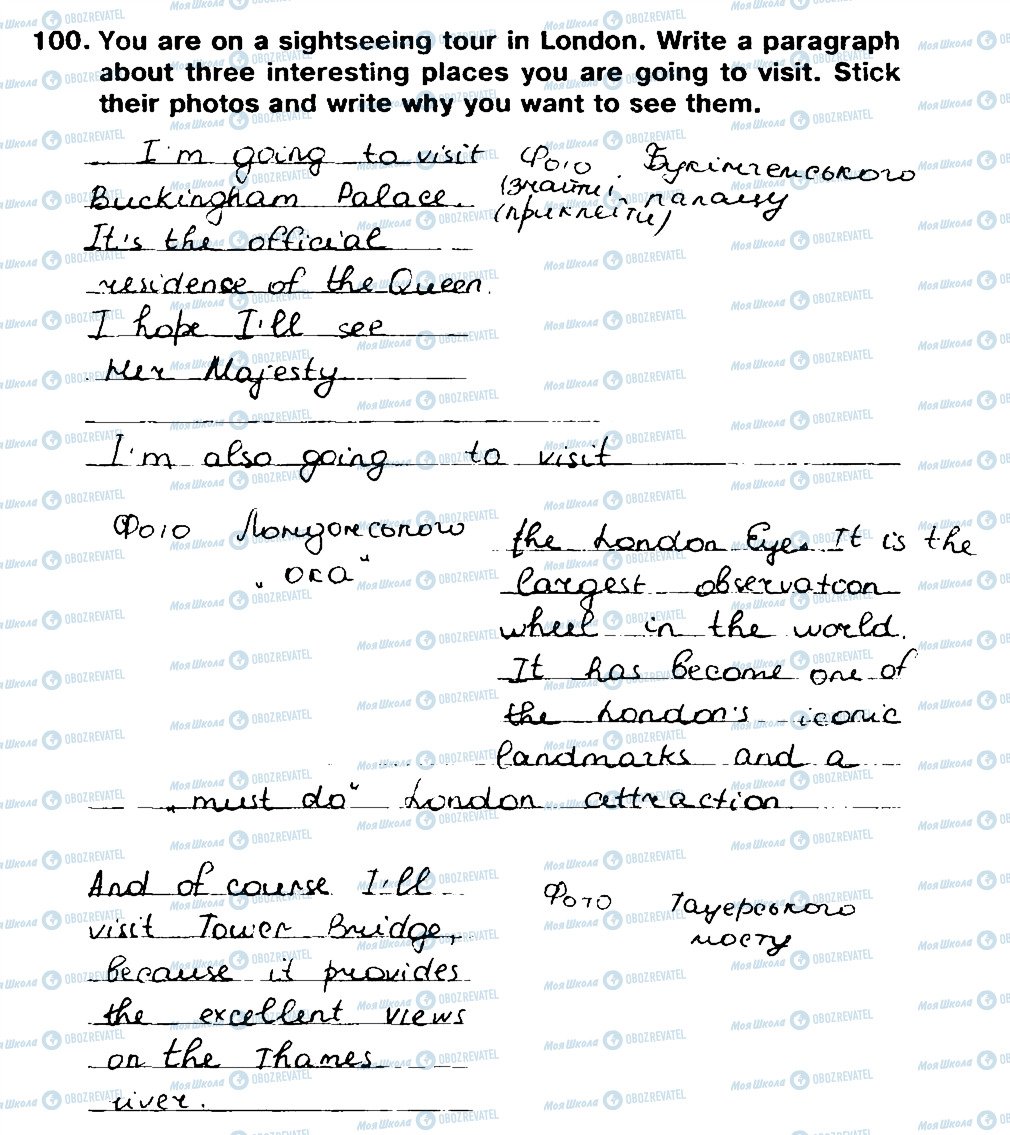 100. You are on a sightseeing tour in London. Write a paragraph
about three interesting places you are going to visit. Stick
their photos and write why you want to see them.
I'm going to visit
Buckingham Palace.
It's the official
residence of the Queen.
I hope I'll see
Her Majesty
Фото Букінгемського
(знайти і палацу
(приклеїти)
I'm also going to visit
Фото Лондонського
„ ока "
the London Eye. It is the
largest observation
wheel in the world.
It has become one of
the London's iconic
landmarks and a
„must do" London attraction
And of course I'll
visit Tower Bridge,
because it provides
the excellent views
on the Thames
river.
Фото Тауерського
мосту
МояШкола OBOZREVATEL